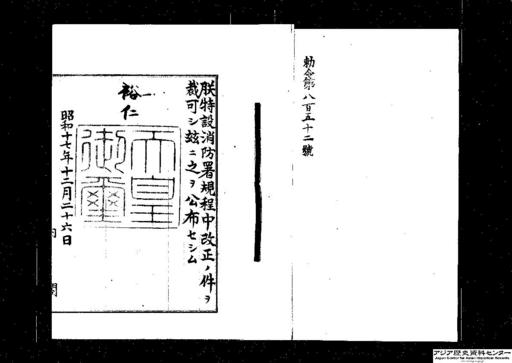 勅令第八百五十二號
朕特設消防署規程中改正ノ件ヲ
裁可シ玆ニ之ヲ公布セシム
裕仁
天皇御璽
昭和十七年十二月二十六日
内閣
アジア歴史資料センター
Japan Center for Asian Historical Records